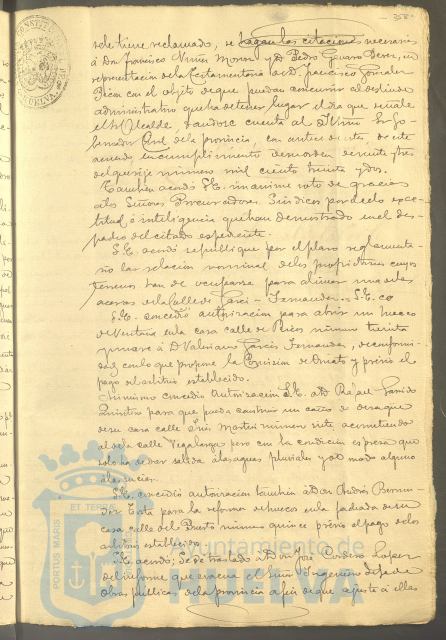 se le tiene reclamado, se hagan las citaciones necesarias
á Don Francisco Nuñez Moron y D Pedro Perez, en
representacion de la Testamentaria de D. Francisco Gonzalez
con el objeto de que puedan concurrir al deslinde
administrativo que ha de tener lugar el dia que señale
el Sr Alcalde, dandose cuenta al Iltmo Sr Go-
bernador Civil de la provincia, con antecedentes, de este
acuerdo, en cumplimiento de su orden de veinte y tres
del que rije número mil ciento treinta y dos.
Tambien acordó S.E. unánime voto de gracias
a los Señores Procuradores Síndicos por el celo exac-
titud é inteligencia que han demostrado en el des-
pacho del citado expediente.
S.E. acordó se publique por el plazo reglamenta-
rio la relacion nominal de los propietarios cuyos
terrenos han de ocuparse para alinear una de las
aceras de la Calle de Garci-Fernandez. S.E. co
S.E. concedió autorizacion para abrir un hueco
de Ventana en la casa calle de número treinta
á D Valeriano Garcia Fernandez, de conformi-
dad con lo que propone la Comision de Ornato y prévio el
pago del arbitrio establecido.
Asimismo concedió autorizacion S.E. á D Rafael Garrido
Quintero para que pueda construir un caño de desague
de su casa calle número siete, acometiendo
al de la calle pero con la condicion espresa que
solo ha de dar salida á las aguas pluviales y de modo alguno
á las sucias.
S.E. concedió autorizacion tambien á Don Andrés Bermu-
dez para la reforma de huecos en la fachada de su
casa calle del Puerto número quince prévio el pago de los
arbitrios establecidos.
S.E. acordó: se dé traslado á Don José Cordero Lopez
del informe que evacua el Señor Ingeniero Jefe de
Obras públicas de la provincia á fin de que ajuste á ellas
PORTUS MARIS ET TERRAE
Ayuntamiento de
HUELVA